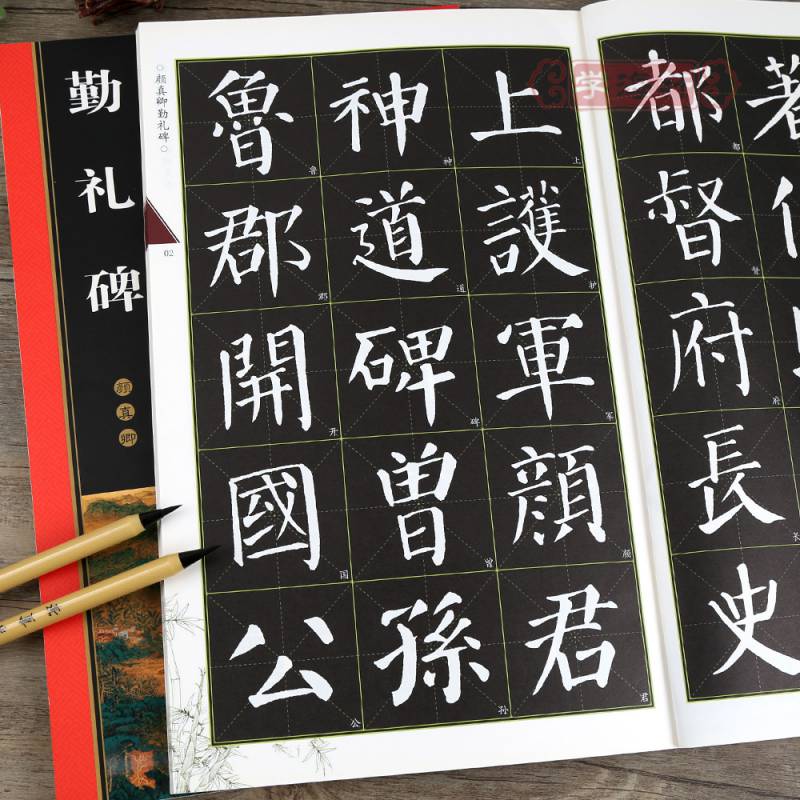 著
都督府長史
都督府长
上護軍顏君
上护军颜君
神道碑曾孫
神道碑曾孙
魯郡開國公
鲁郡开国公
颜真卿勤礼碑
02
勤礼碑
颜真卿